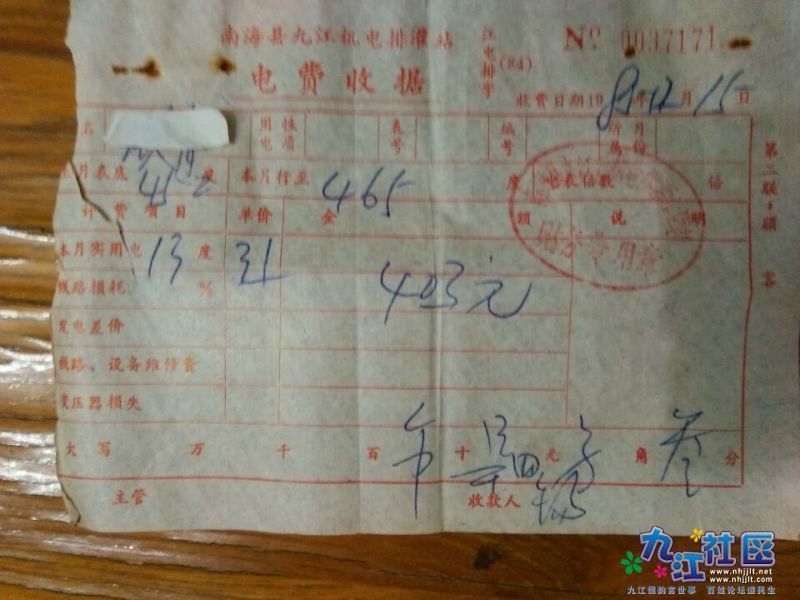 南海县九江机电排灌站
江电排字(84)
№ 0037171
电费收据
收费日期1989年12月15日
名 用电性质 表号 编号 所属月份
上月表底452度 本月行至465度 电表倍数 倍
计费项目 单价 金额 说明
本月实用电13度 31 4.03元
线路损耗 %
发电差价
线路、设备维修费
变压器损失
大写 万 千 百 十 元 角 叁分
主管 收款人
第二联：顾客
财务专用章
九江社区
www.nhjjlt.net
www.nhjjlt.com
九江儒韵言世事 百姓论坛道民生